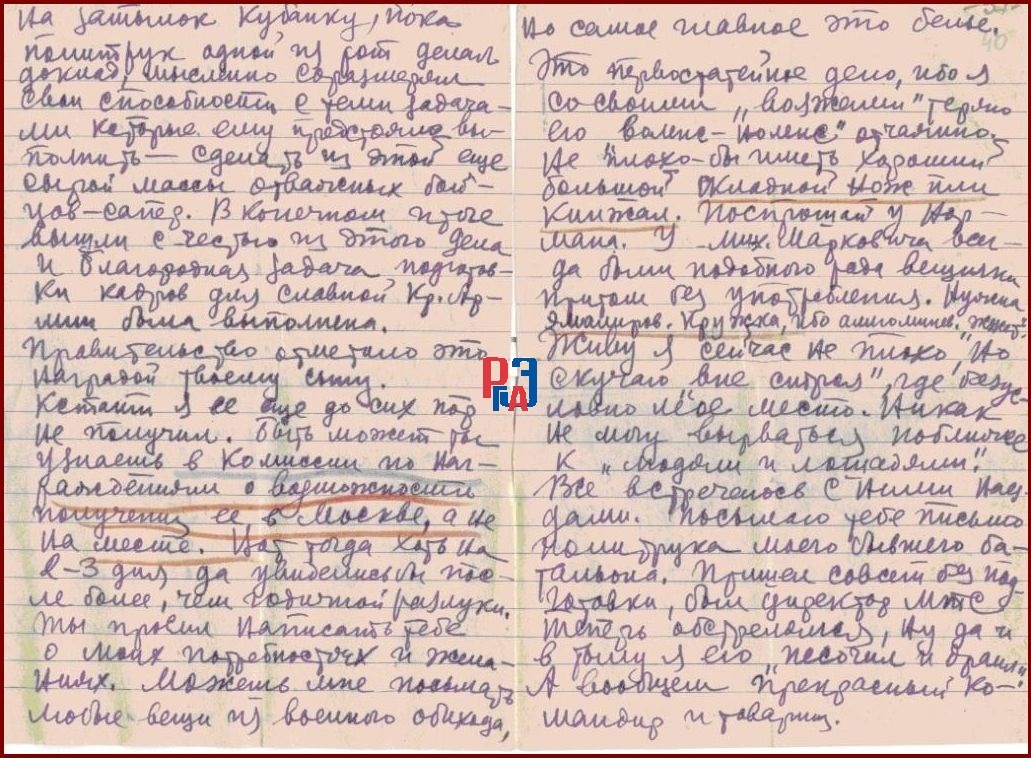 На затылок Кубанку, пока
политрук одной из рот делал
доклад, мысленно соразмерял
свои способности с теми задача-
ми которые ему предстояло вы-
полнить — сделать из этой еще
сырой массы отважных бой-
цов-сапер. В конечном итоге
вышли с честью из этого дела
и благородная задача подготов-
ки кадров для славной Кр. Ар-
мии была выполнена.
Правительство отметило это
наградой твоему сыну.
Кстати я ее еще до сих пор
не получил. Быть может ты
узнаешь в Комиссии по наг-
раждениям о возможности
получения ее в Москве, а не
на месте. тогда хоть на
2-3 дня да увиделись бы пос-
ле более, чем годичной разлуки.
Ты просил написать тебе
о моих потребностях и жела-
ниях. Можешь мне посылать
любые вещи из военного обихода,
Но самое главное это белье.
40
Это первостатейное дело, ибо я
со своими „вояжеми" теряю
его воленс-ноленс" отчаянно.
Не плохо-бы иметь хороший
большой складной нож или
кинжал. Поспрошай у Нор-
мана. У Мих. Марковича всег-
да были подобного рода вещички
притом без употребления. Нужна
эмалиров. Кружка, ибо алюминев. жжет".
Живу я сейчас не плохо "Но
скучаю вне строя", где безус-
ловно мое место. Никак
не могу вырваться поближе
к „людям и лошадям".
Все встречаюсь с ними наез-
дами. Посылаю тебе письмо
политрука моего бывшего ба-
тальона. Пришел совсем без под-
готовки, был директор МТС
теперь обстрелялся, ну да и
в тылу я его „песочил и драил"
А вообщем прекрасный ко-
мандир и товарищ.
РГАЭ